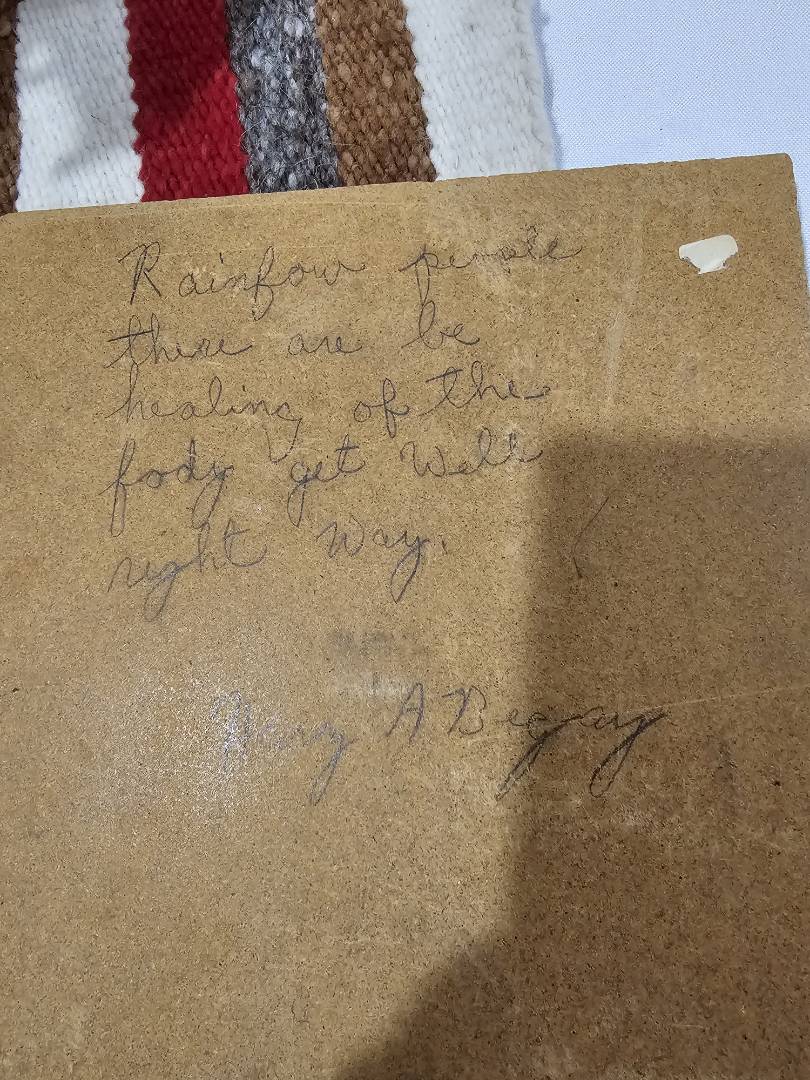 Rainbow people
there are be
healing of the
fody get Well
right Way.
A Begay